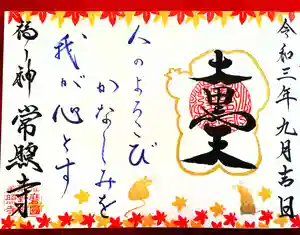 令和三年九月吉日
大黒天
人のよろこび
かなしみを
我が心とす
福ノ神 常照寺